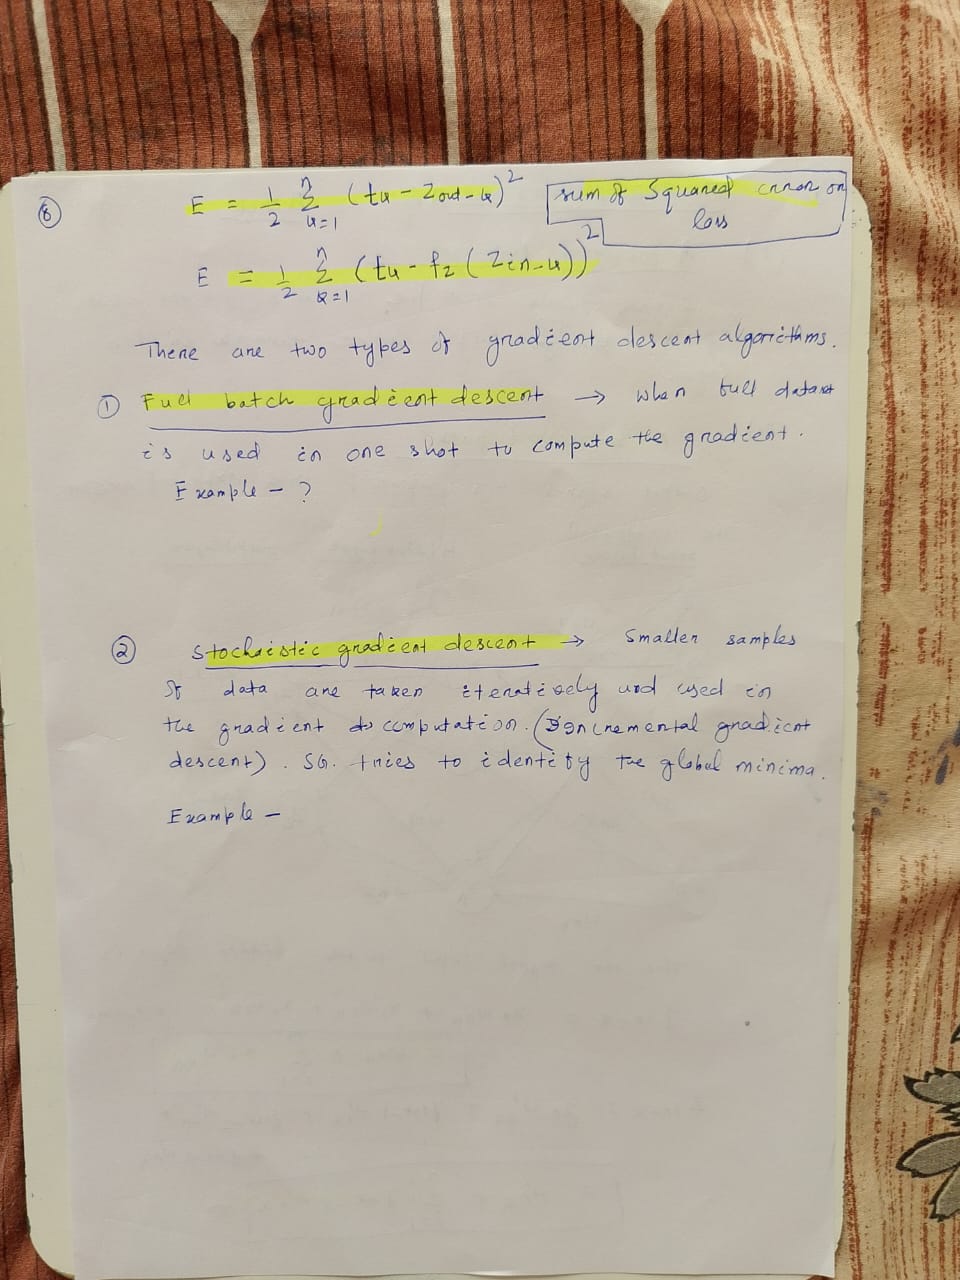 ⑧ E = 1/2 n Σ k=1 (tk - Zout-k)² sum of Squared error or loss
E = 1/2 n Σ k=1 (tk - fz (Zin-k))²
There are two types of gradient descent algorithms.
① Full batch gradient descent → when full dataset
is used in one shot to compute the gradient.
Example - ?
② Stochaistic gradient descent → Smaller samples
of data are taken iteratively and used in
the gradient computation. (Incremental gradient
descent). SG. tries to identify the global minima.
Example -